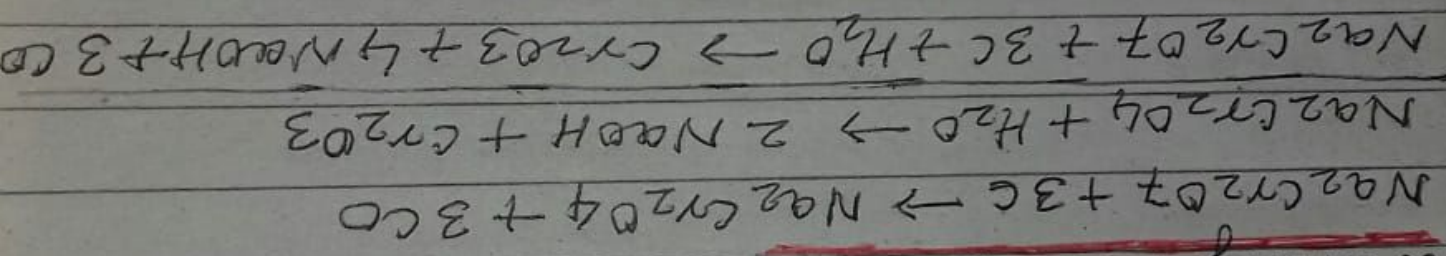 Na2Cr2O7 + 3C → Na2Cr2O4 + 3CO
Na2Cr2O4 + H2O → 2 NaOH + Cr2O3
Na2Cr2O7 + 3C + H2O → Cr2O3 + 4 NaOH + 3 CO